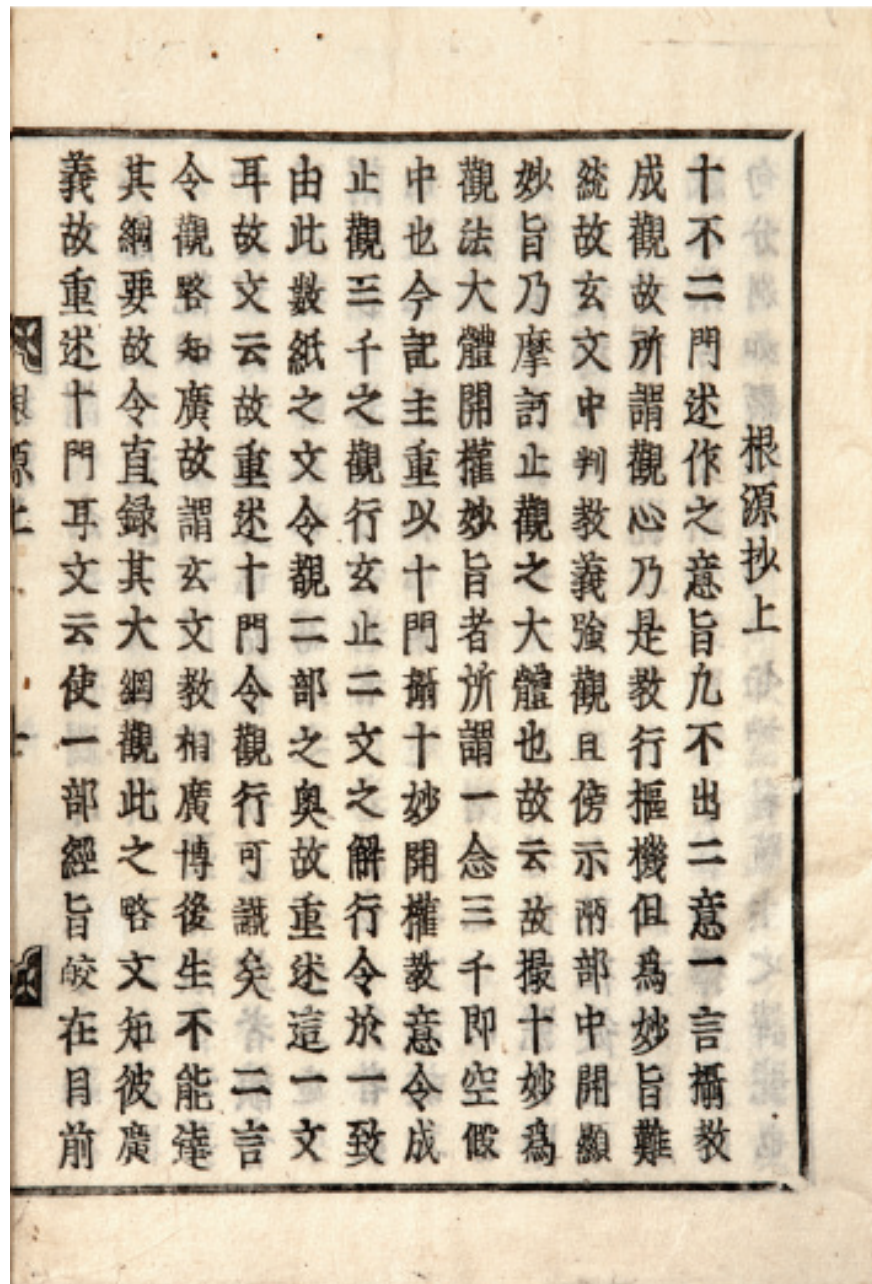 根源抄上
十不二門述作之意旨九不出二意一言攝教
成觀故所謂觀心乃是教行樞機但爲妙旨難
統故玄文中判教義強觀且傍示兩部中開顯
妙旨乃摩訶止觀之大體也故云故撮十妙爲
觀法大體開權妙旨者所謂一念三千即空假
中也今記主重以十門攝十妙開權教意令成
止觀三千之觀行玄止二文之解行令於一致
由此數紙之文令覩二部之奧故重述這一文
耳故文云故重述十門令觀行可識矣二言
令觀略知廣故謂玄文教相廣博後生不能達
其綱要故令直録其大綱觀此之略文知彼廣
義故重述十門耳文云使一部經旨皎在目前
根源上